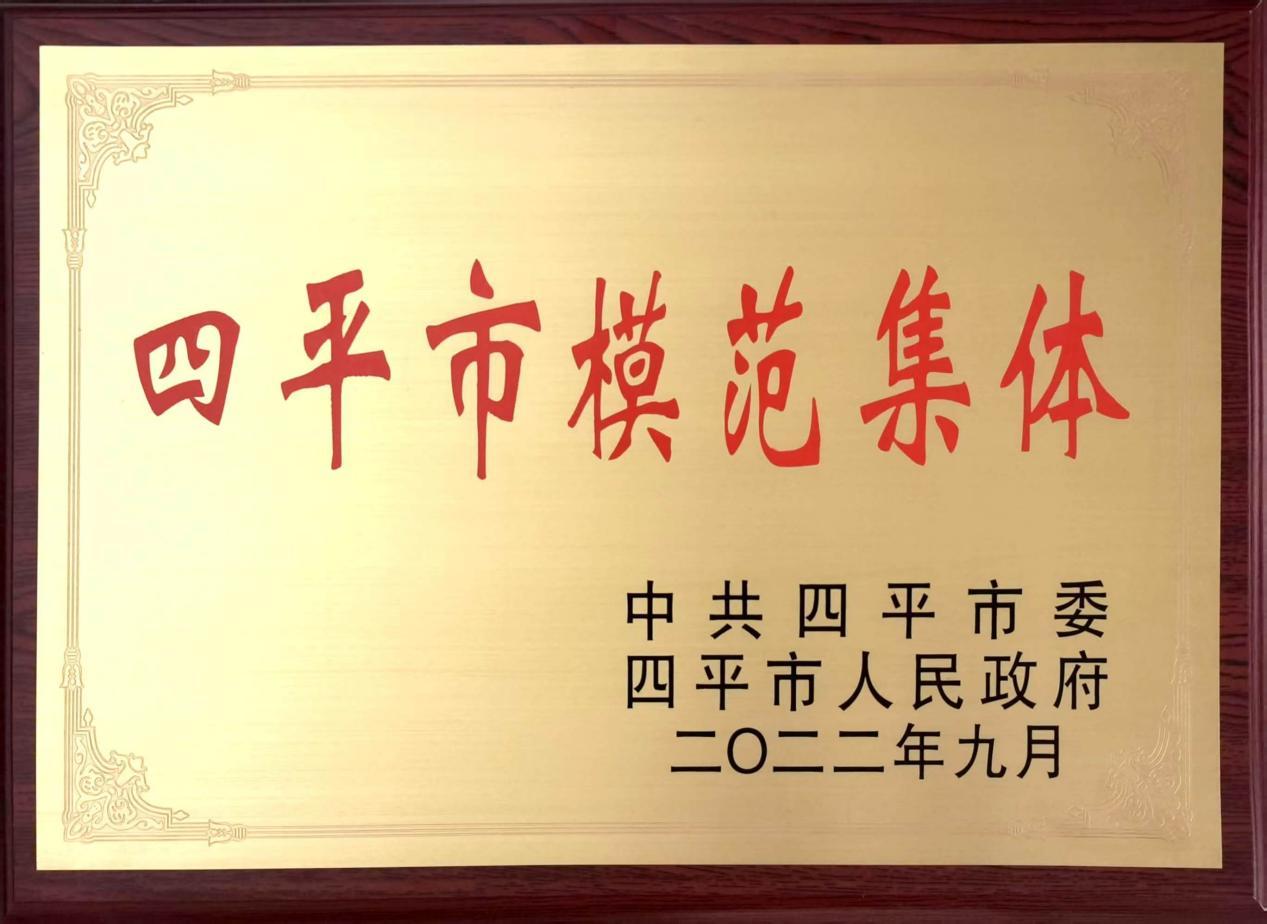 四平市模范集体
中共四平市委
四平市人民政府
二〇二二年九月